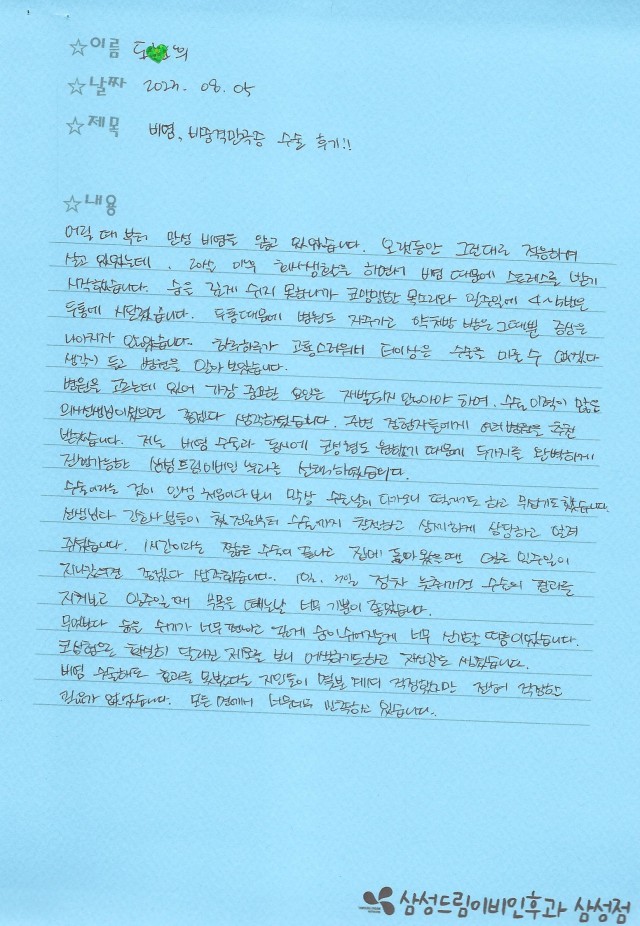 ☆이름 도 의
☆날짜 2023. 08. 05
☆제목 비염, 비중격만곡증 수술 후기!!
☆내용
어릴 때부터 만성 비염을 앓고 있었습니다. 오랫동안 그런대로 적응하며
살고 있었는데, 20살 이후 회사생활을 하면서 비염 때문에 스트레스를 받기
시작했습니다. 숨을 깊게 쉬지 못하니까 코맹맹한 목소리와 일주일에 4~5번은
두통에 시달렸습니다. 두통때문에 병원도 자주가고 약처방 받은 그때뿐 증상은
나아지지 않았습니다. 하루하루가 고통스러워서 더이상은 수술을 미룰 수 없겠다
생각이 들고 병원을 알아 보았습니다.
병원을 고르는데 있어 가장 중요한 요인은 재발되지 않아야 하며, 수술 이력이 많은
의사선생님이었으면 좋겠다 생각하였습니다. 주변 경험자들에게 여러병원을 추천
받았습니다. 저는 비염 수술과 동시에 코성형도 원했기 때문에 두가지를 완벽하게
진행가능한 삼성드림이비인후과를 선택하였습니다.
수술이라는 것이 인생 처음이다 보니 막상 수술날이 다가오니 떨리기도 하고 무섭기도 했습니다.
선생님과 간호사분들이 첫 진료부터 수술까지 친절하고 상세하게 상담하고 알려
주셨습니다. 1시간이라는 짧은 수술이 끝나고 집에 돌아왔을때 얼른 일주일이
지나갔으면 좋겠다 생각했습니다. 1일, 2일 점차 늦춰가면 수술의 결과를
지켜보고 일주일 째 부목을 떼는날 너무 기분이 좋았습니다.
무엇보다 숨을 쉬기가 너무 편하고 깊게 숨이 쉬어지는게 너무 신기할 따름이었습니다.
코성형으로 확실히 달라진 제모습 보니 어색하기도하고 자신감도 생겼습니다.
비염 수술해도 효과를 못봤다는 지인들이 몇분 계셔 걱정했지만 전혀 걱정할
필요가 없었습니다. 모든 면에서 너무너무 만족하고 있습니다.
삼성드림이비인후과 삼성점